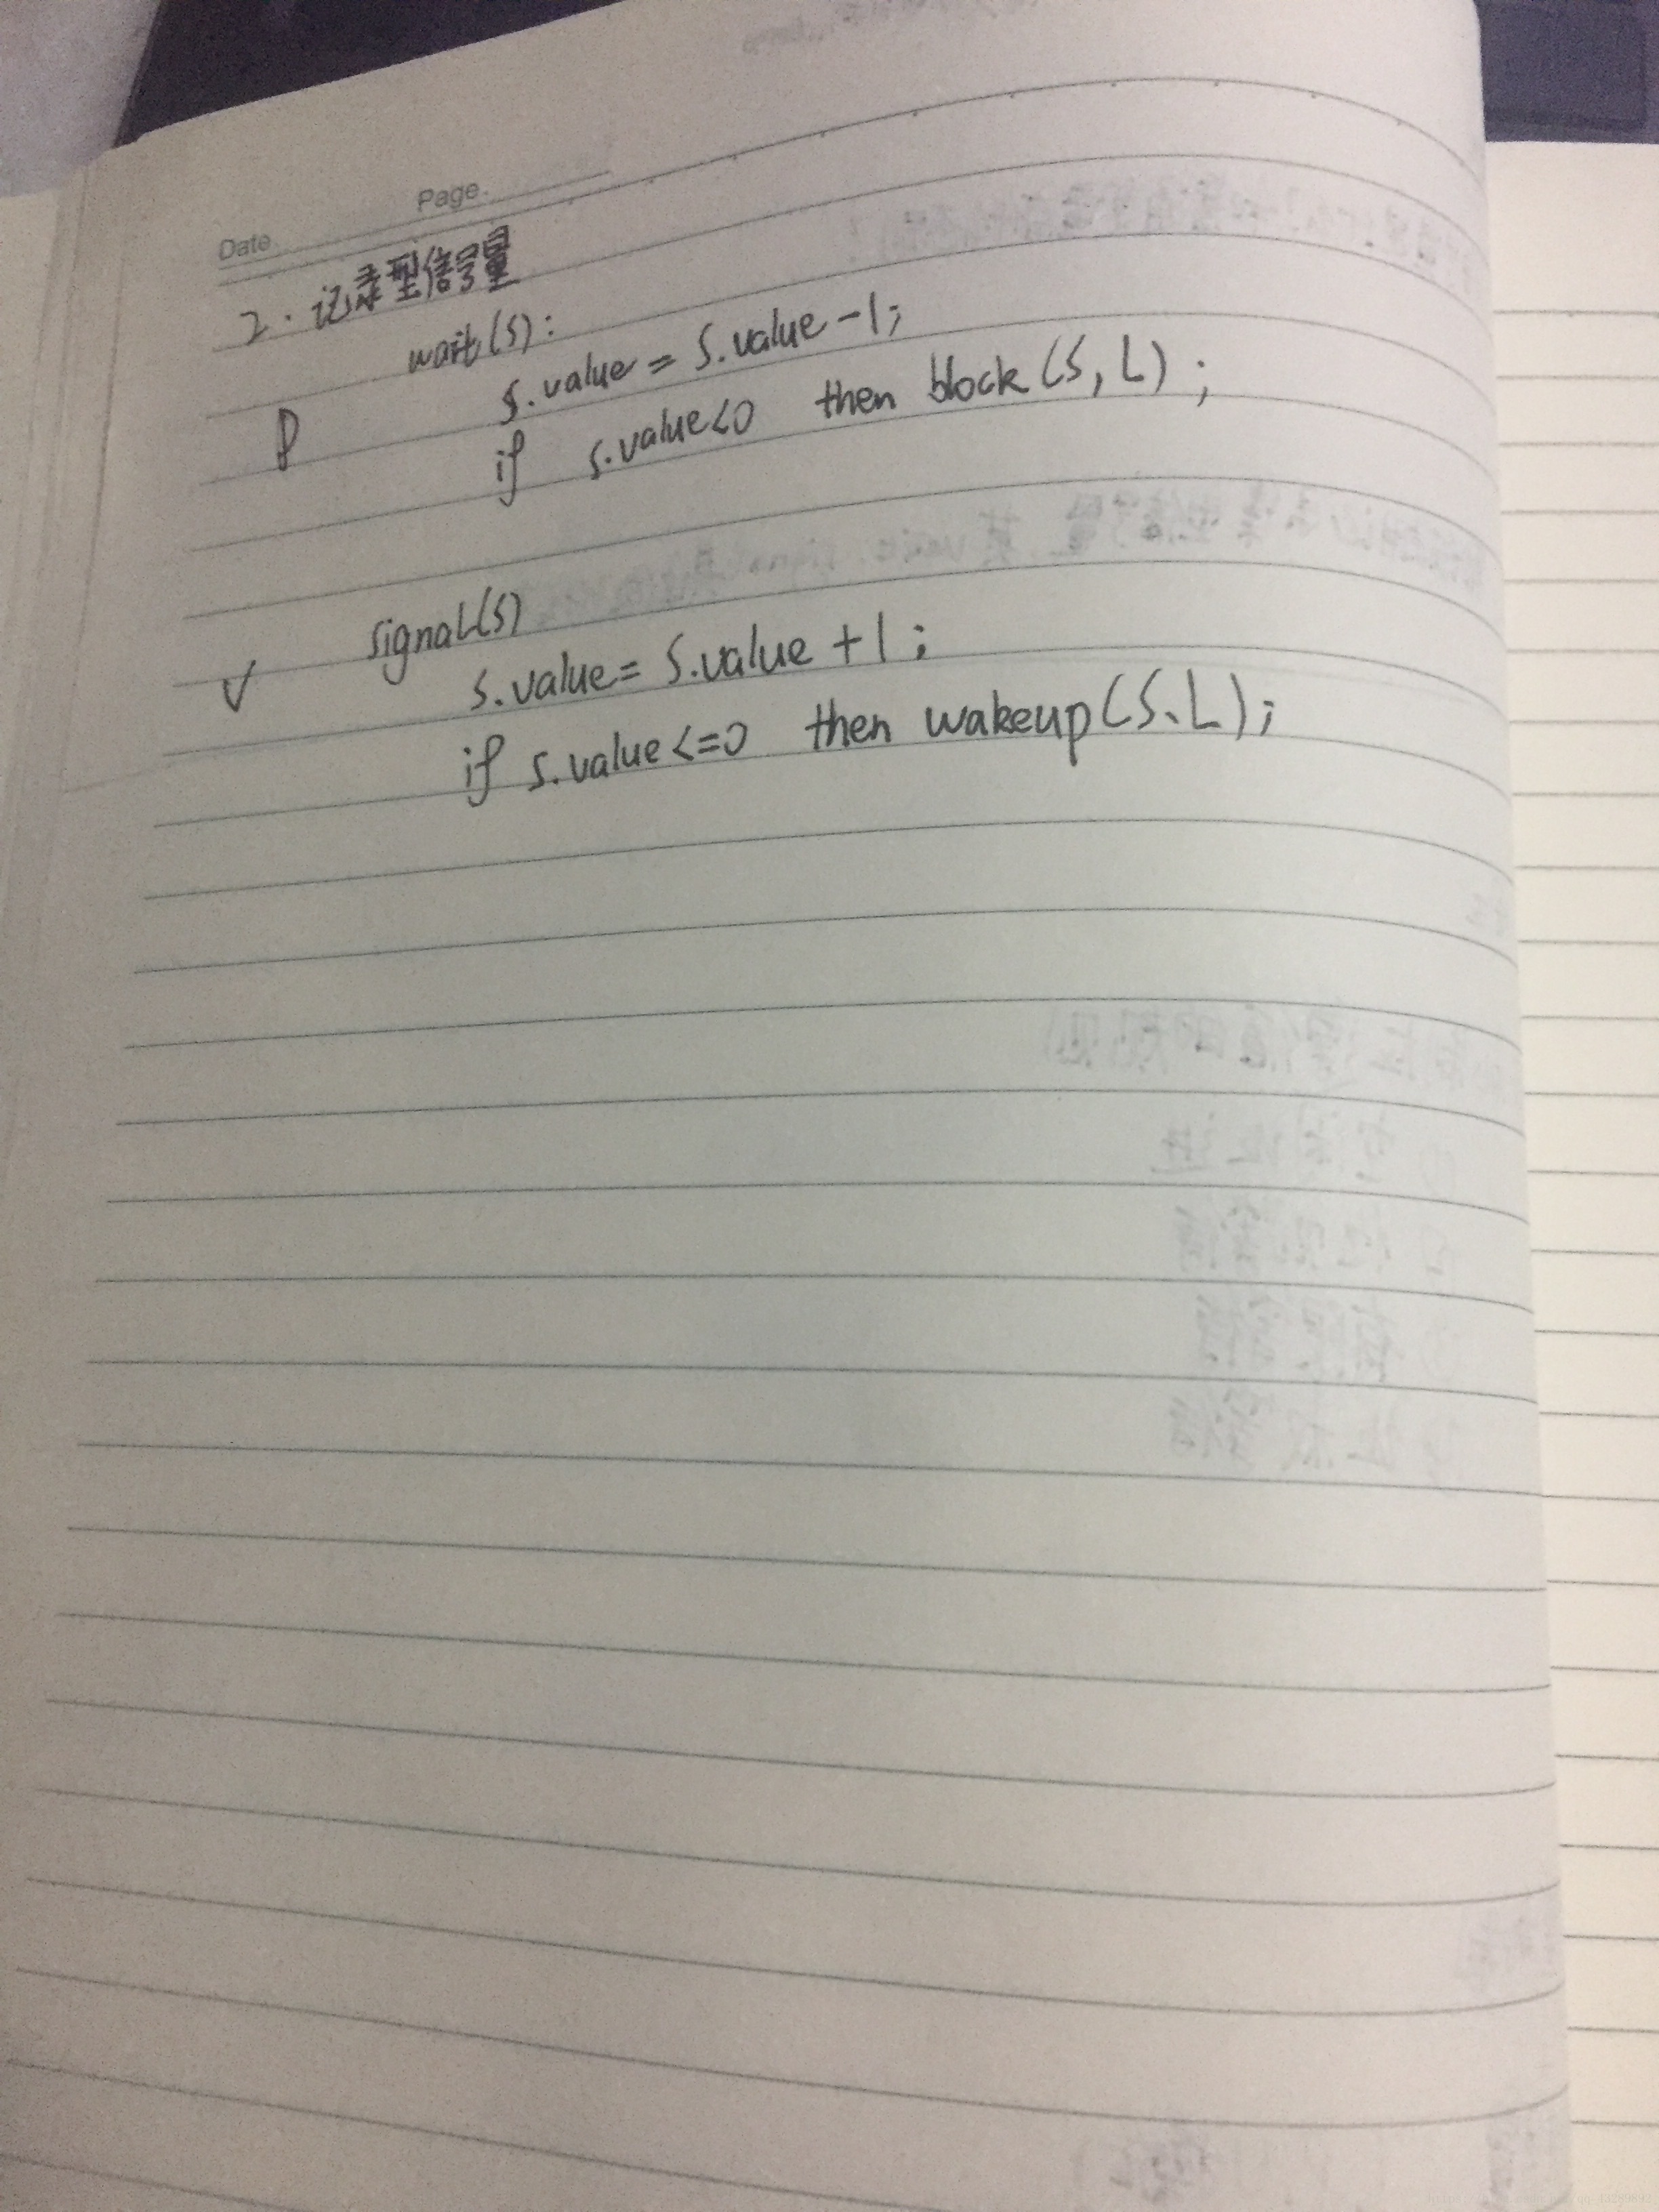 Page.
Date
2. 记录型信号量
wait(S):
S.value = S.value -1;
P
if S.value<0 then block(S, L);
signal(S)
V
S.value = S.value +1;
if S.value <=0 then wakeup(S.L);